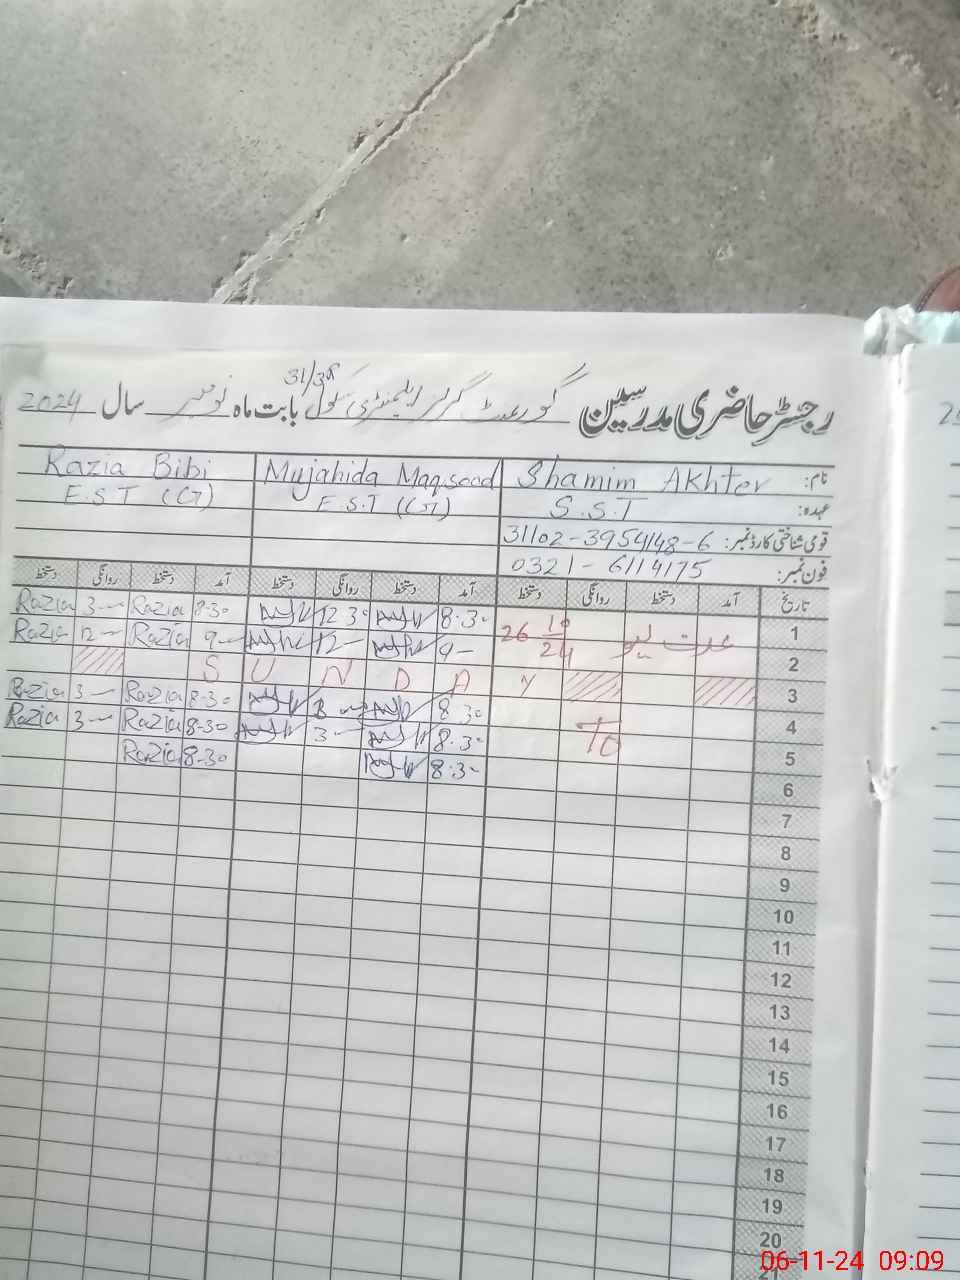 رجسٹر حاضری مدرسین گورنمنٹ گرلز ایلیمنٹری سکول 31/3R بابت ماہ نومبر سال 2024
نام: Shamim Akhter Mujahida Maqsood Razia Bibi
عہدہ: S.S.T E.S.T (G) E.S.T (G)
قومی شناختی کارڈ نمبر: 31102-3954148-6
فون نمبر: 0321-6114175
تاریخ آمد دستخط روانگی دستخط آمد دستخط روانگی دستخط آمد دستخط روانگی دستخط
1 8.30 12.30 8-30 Razia 3 Razia
عدت 26 10/24
2 9 12 9 Razia 12 Razia
3 S U N D A Y
4 8.30 3 8-30 Razia 3 Razia
To
5 8.30 3 8-30 Razia 3 Razia
6 8.30 8-30 Razia
7
8
9
10
11
12
13
14
15
16
17
18
19
20
21
06-11-24 09:09